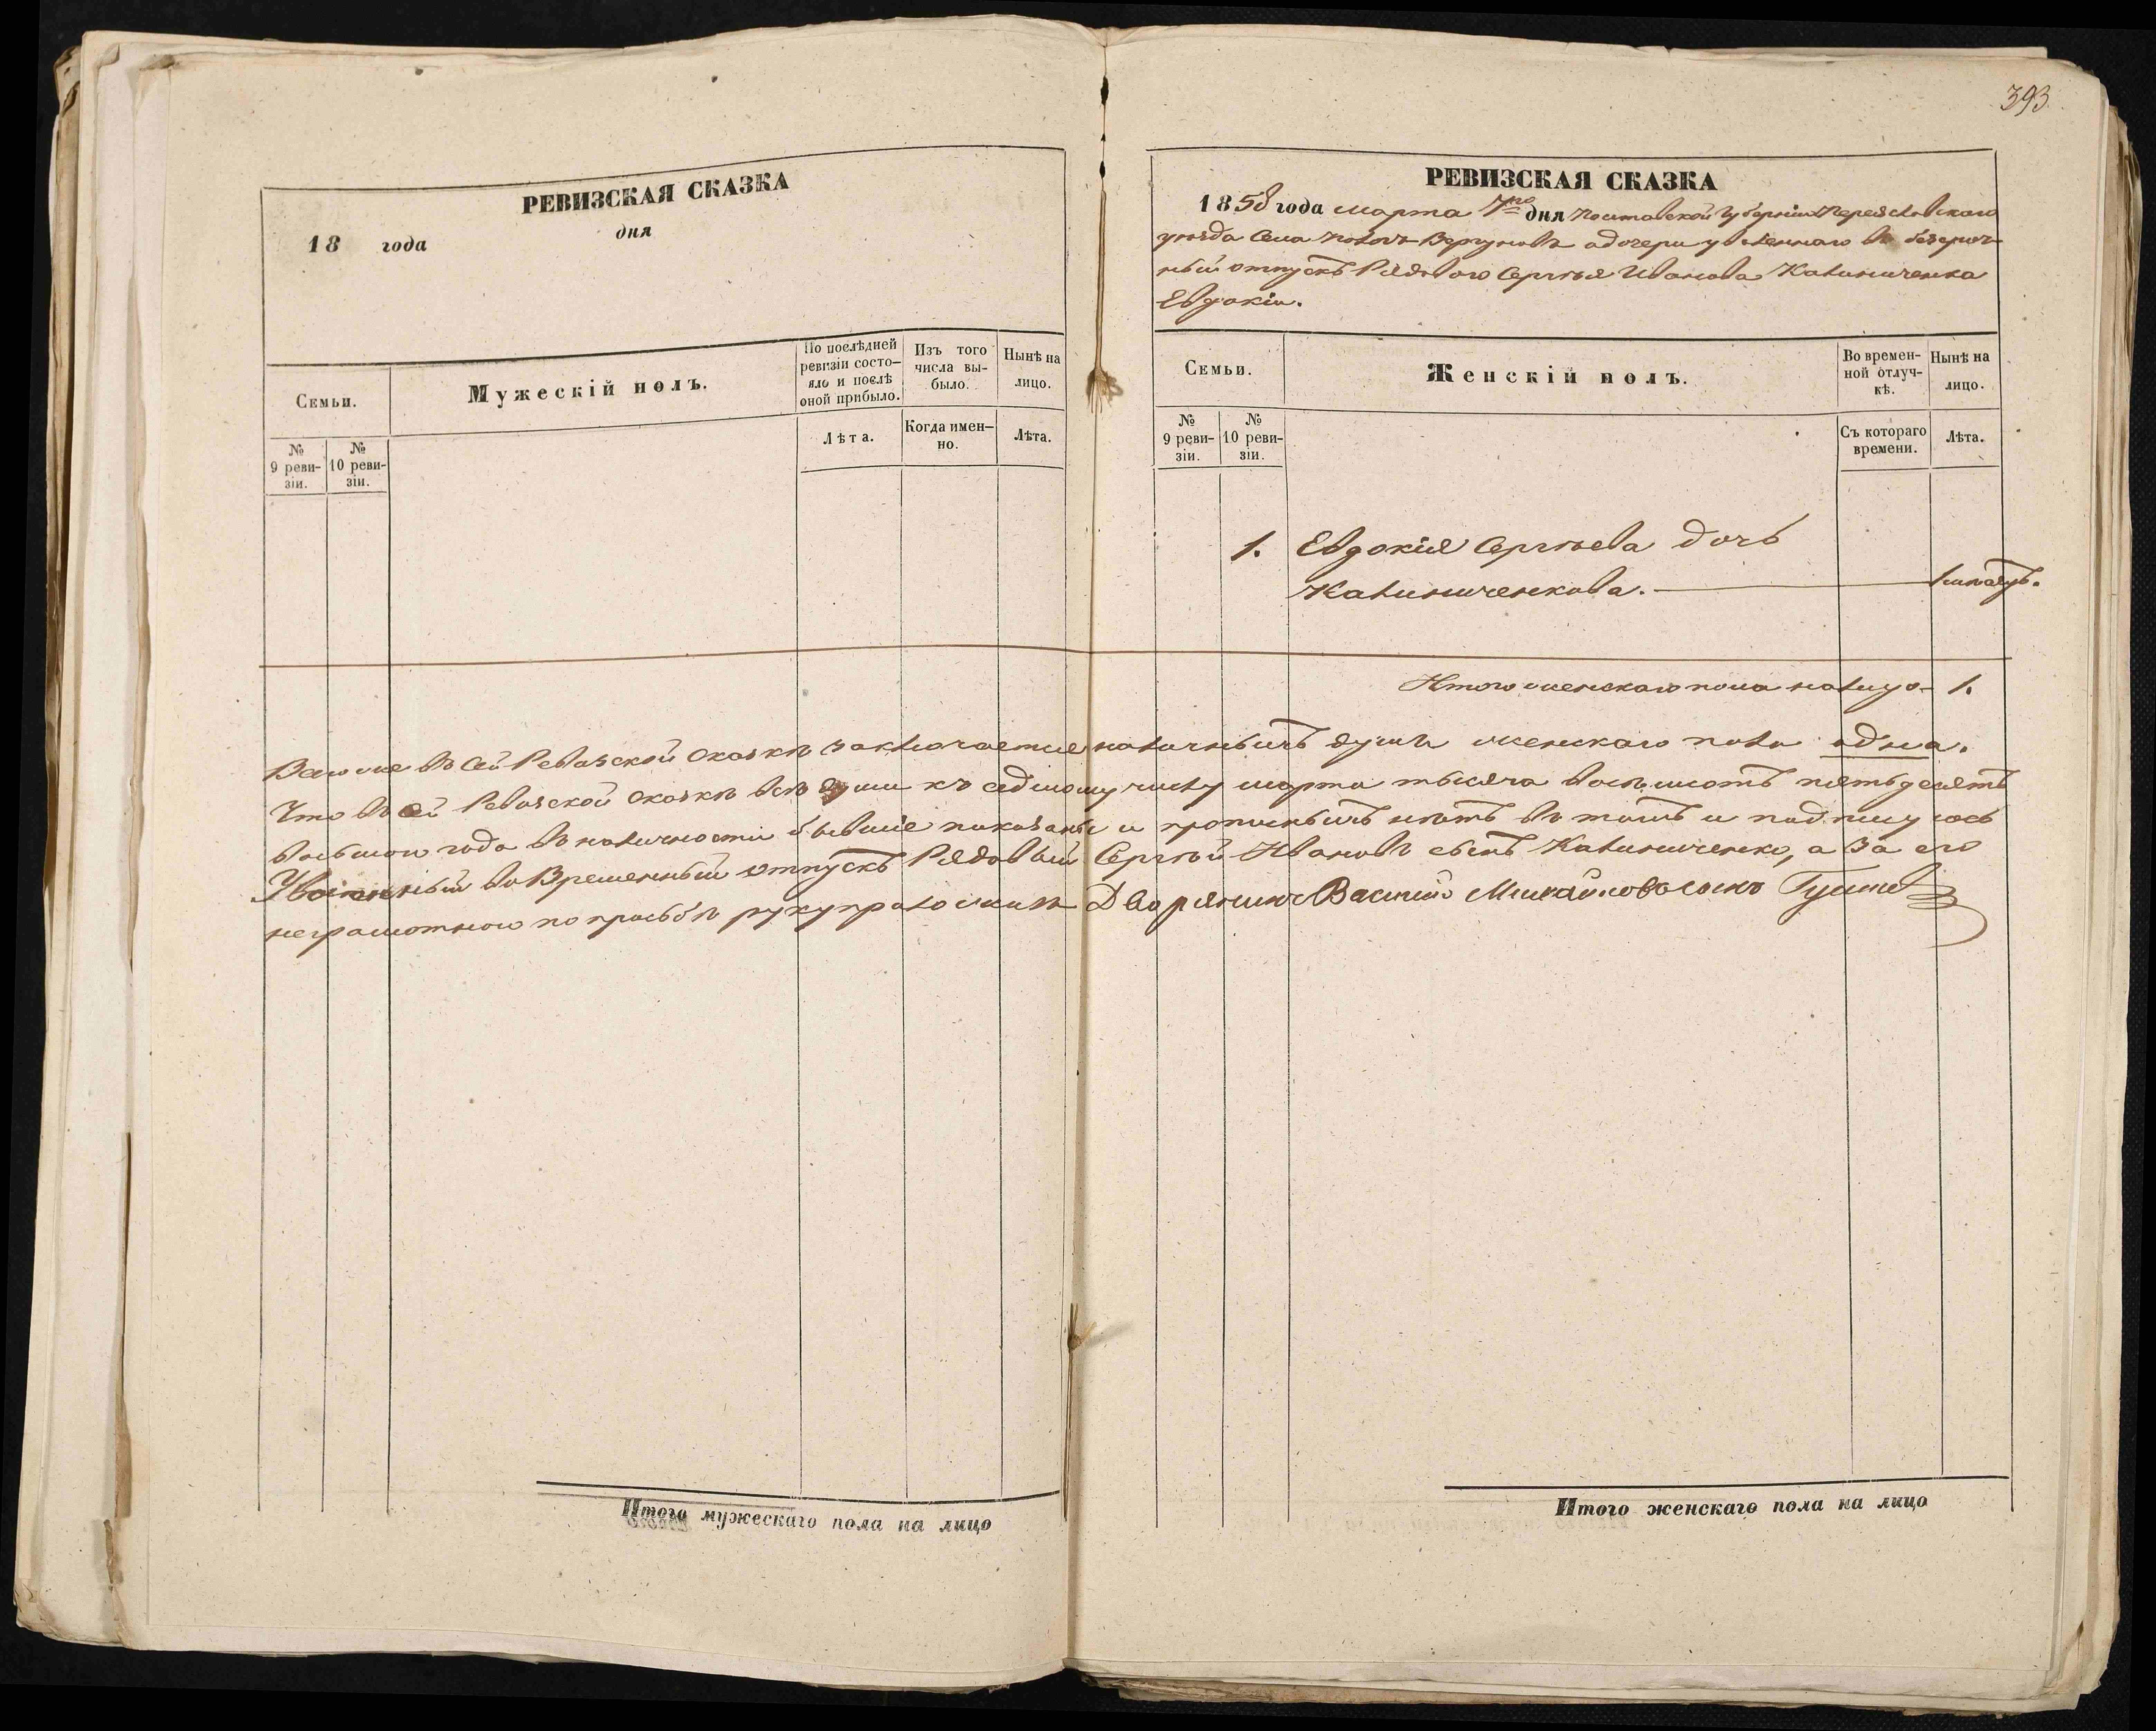 393.
РЕВИЗСКАЯ СКАЗКА
18 года дня
Семьи.
Мужескій полъ.
По послѣдней ревизіи состояло и послѣ оной прибыло.
Изъ того числа выбыло.
Нынѣ на лицо.
№ 9 ревизіи.
№ 10 ревизіи.
Лѣта.
Когда именно.
Лѣта.
РЕВИЗСКАЯ СКАЗКА
1858 года марта 7го дня Полтавской Губерніи Переяславскаго
уѣзда Села Вергуновъ о дочери уволеннаго въ безсроч-
ный отпускъ Рядового Сергѣя Иванова Калиниченка
Евдокіи.
Семьи.
Женскій полъ.
Во временной отлучкѣ.
Нынѣ на лицо.
№ 9 ревизіи.
№ 10 ревизіи.
Съ котораго времени.
Лѣта.
1. Евдокія Сергѣева дочь
Калиниченкова.
Итого женскаго пола налицо - 1.
Всего же въ сей Ревизской сказкѣ заключается наличныхъ душъ женскаго пола одна.
Что въ сей Ревизской сказкѣ всѣ души къ седьмому числу марта тысяча восемьсотъ пятьдесятъ
восьмого года въ наличности бывшіе показаны и прописныхъ нѣтъ въ томъ и подписуюсь
Уволенный во Временный отпускъ Рядовый Сергѣй Ивановъ сынъ Калиниченко, а за его
неграмотного по просьбѣ руку приложилъ Дворянинъ Василий Михайловъ сынъ
Итого мужескаго пола на лицо
Итого женскаго пола на лицо